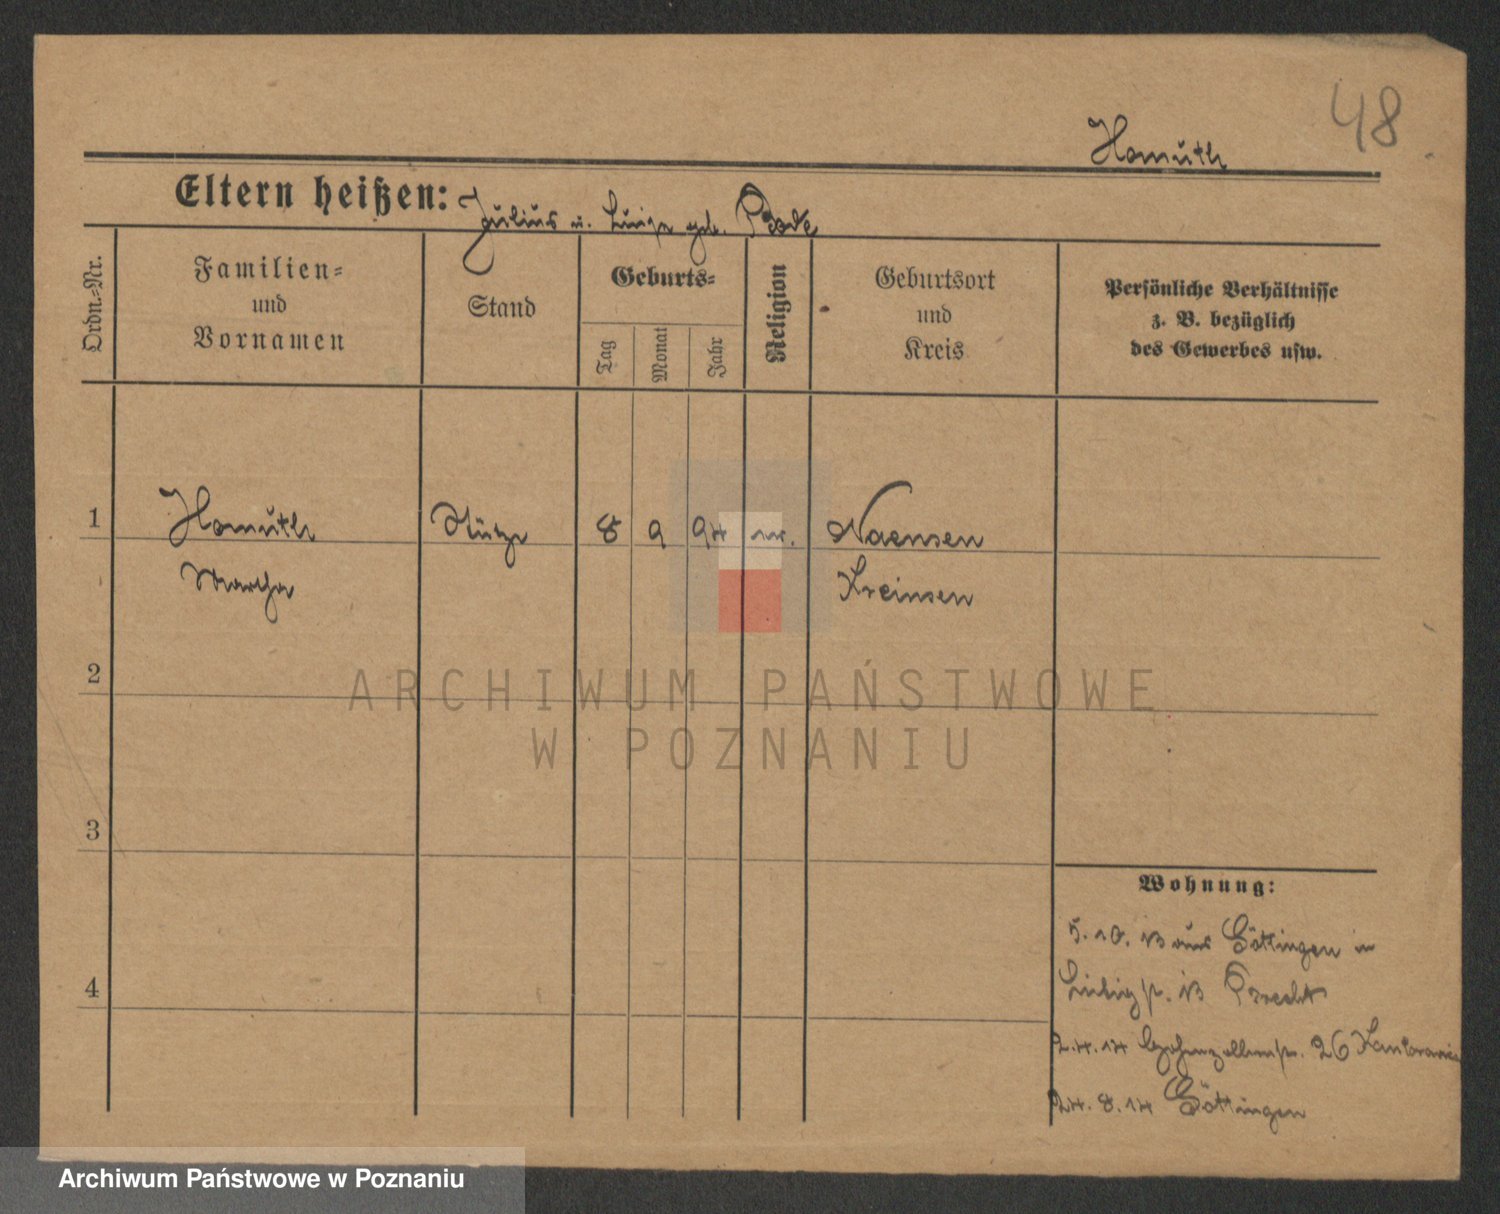 48
Homuth
Eltern heißen: Julius u. Luise geb.
Ordn.-Nr.
Familien-
und
Vornamen
Stand
Geburts-
Tag
Monat
Jahr
Religion
Geburtsort
und
Kreis
Persönliche Verhältnisse
z. B. bezüglich
des Gewerbes usw.
1
Homuth Stütze 8 9 94 Naensen
Martha Kreiensen
2
ARCHIWUM PAŃSTWOWE
W POZNANIU
3
Wohnung:
5.10.13 aus Göttingen in
Liebigstr. 13
4
2.4.14 Hohenzollernstr. 26
24.8.14 Göttingen
Archiwum Państwowe w Poznaniu